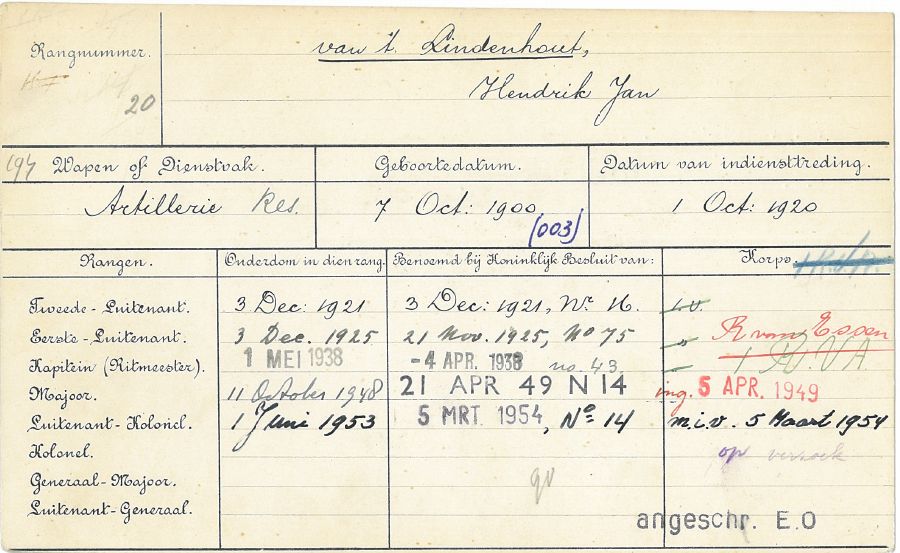 van 't Lindenhout,
Rangnummer.
Hendrik Jan
20
194 Wapen of Dienstvak. Geboortedatum. Datum van indiensttreding.
Artillerie Res. 7 Oct: 1900 1 Oct: 1920
(003)
Rangen. Ouderdom in dien rang. Benoemd bij Koninklijk Besluit van: Korps.
Tweede-Luitenant. 3 Dec: 1921 3 Dec: 1921, Nr. 16.
Eerste-Luitenant. 3 Dec. 1925 21 Nov. 1925, No 75 R van Essen
Kapitein (Ritmeester). 1 MEI 1938 -4 APR. 1938 no. 43
Majoor. 11 October 1948 21 APR 49 N 14 ing. 5 APR. 1949
Luitenant-Kolonel. 1 Juni 1953 5 MRT 1954, No 14 m.i.v. 5 Maart 1954
Kolonel. op verzoek
Generaal-Majoor.
Luitenant-Generaal.
angeschr. E.O